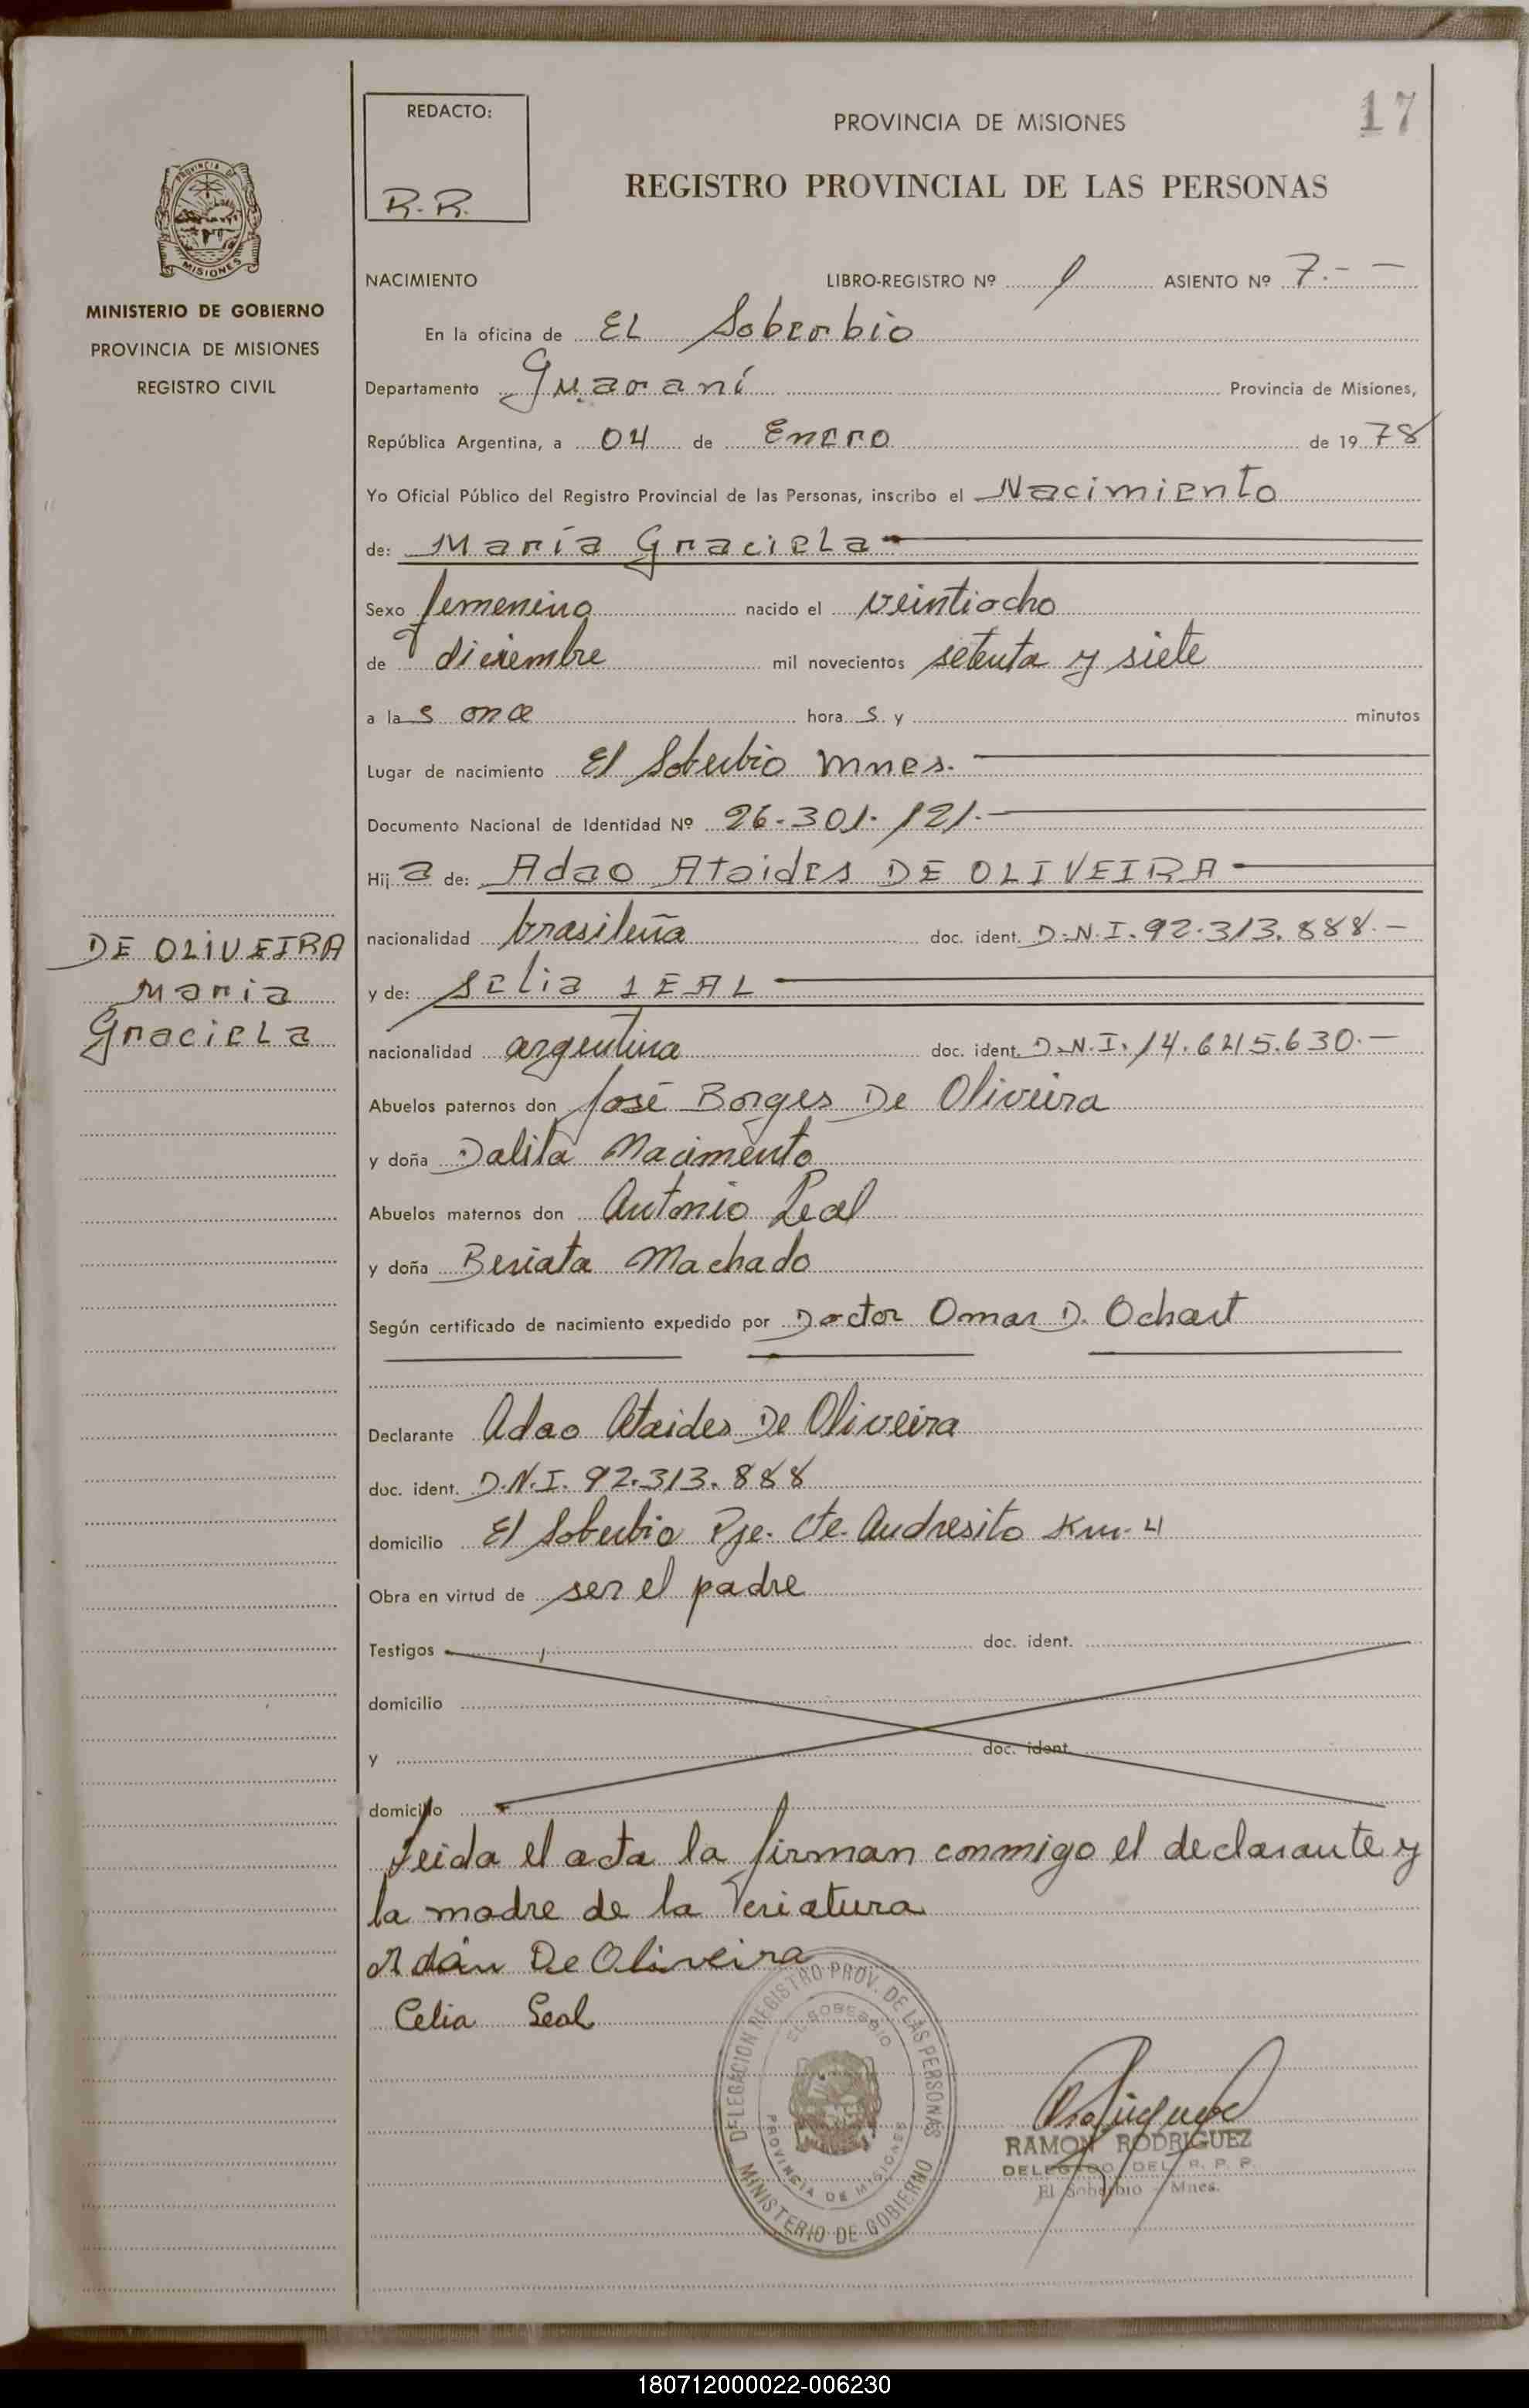 REDACTO:
R. R.
PROVINCIA DE MISIONES
17
REGISTRO PROVINCIAL DE LAS PERSONAS
PROVINCIA DE
MISIONES
MINISTERIO DE GOBIERNO
PROVINCIA DE MISIONES
REGISTRO CIVIL
NACIMIENTO LIBRO-REGISTRO Nº 1 ASIENTO Nº 7.- -
En la oficina de EL Soberbio
Departamento Guaraní Provincia de Misiones,
República Argentina, a 04 de Enero de 1978
Yo Oficial Público del Registro Provincial de las Personas, inscribo el Nacimiento
de: María Graciela
Sexo femenino nacido el veintiocho
de diciembre mil novecientos setenta y siete
a las once horas y minutos
Lugar de nacimiento El Soberbio Mnes.
Documento Nacional de Identidad Nº 26.301.121.
Hija de: Adao Ataides DE OLIVEIRA
nacionalidad brasileña doc. ident. D.N.I. 92.313.888.-
y de: Selia LEAL
DE OLIVEIRA
Maria
Graciela
nacionalidad argentina doc. ident. D.N.I. 14.645.630.-
Abuelos paternos don José Borges De Oliveira
y doña Dalila Nacimento
Abuelos maternos don Antonio Leal
y doña Beriata Machado
Según certificado de nacimiento expedido por Doctor Omar D. Ochart
Declarante Adao Ataides De Oliveira
doc. ident. D.N.I. 92.313.888
domicilio El Soberbio Pje. Cte. Andresito Km. 4
Obra en virtud de ser el padre
Testigos doc. ident.
domicilio
y doc. ident.
domicilio
Leida el acta la firman conmigo el declarante y
la madre de la criatura
Adán De Oliveira
Celia Leal
DELEGACION REGISTRO PROV. DE LAS PERSONAS
EL SOBERBIO
PROVINCIA DE MISIONES
MINISTERIO DE GOBIERNO
RAMON RODRIGUEZ
DELEGADO DEL R. P. P.
El Soberbio - Mnes.
180712000022-006230